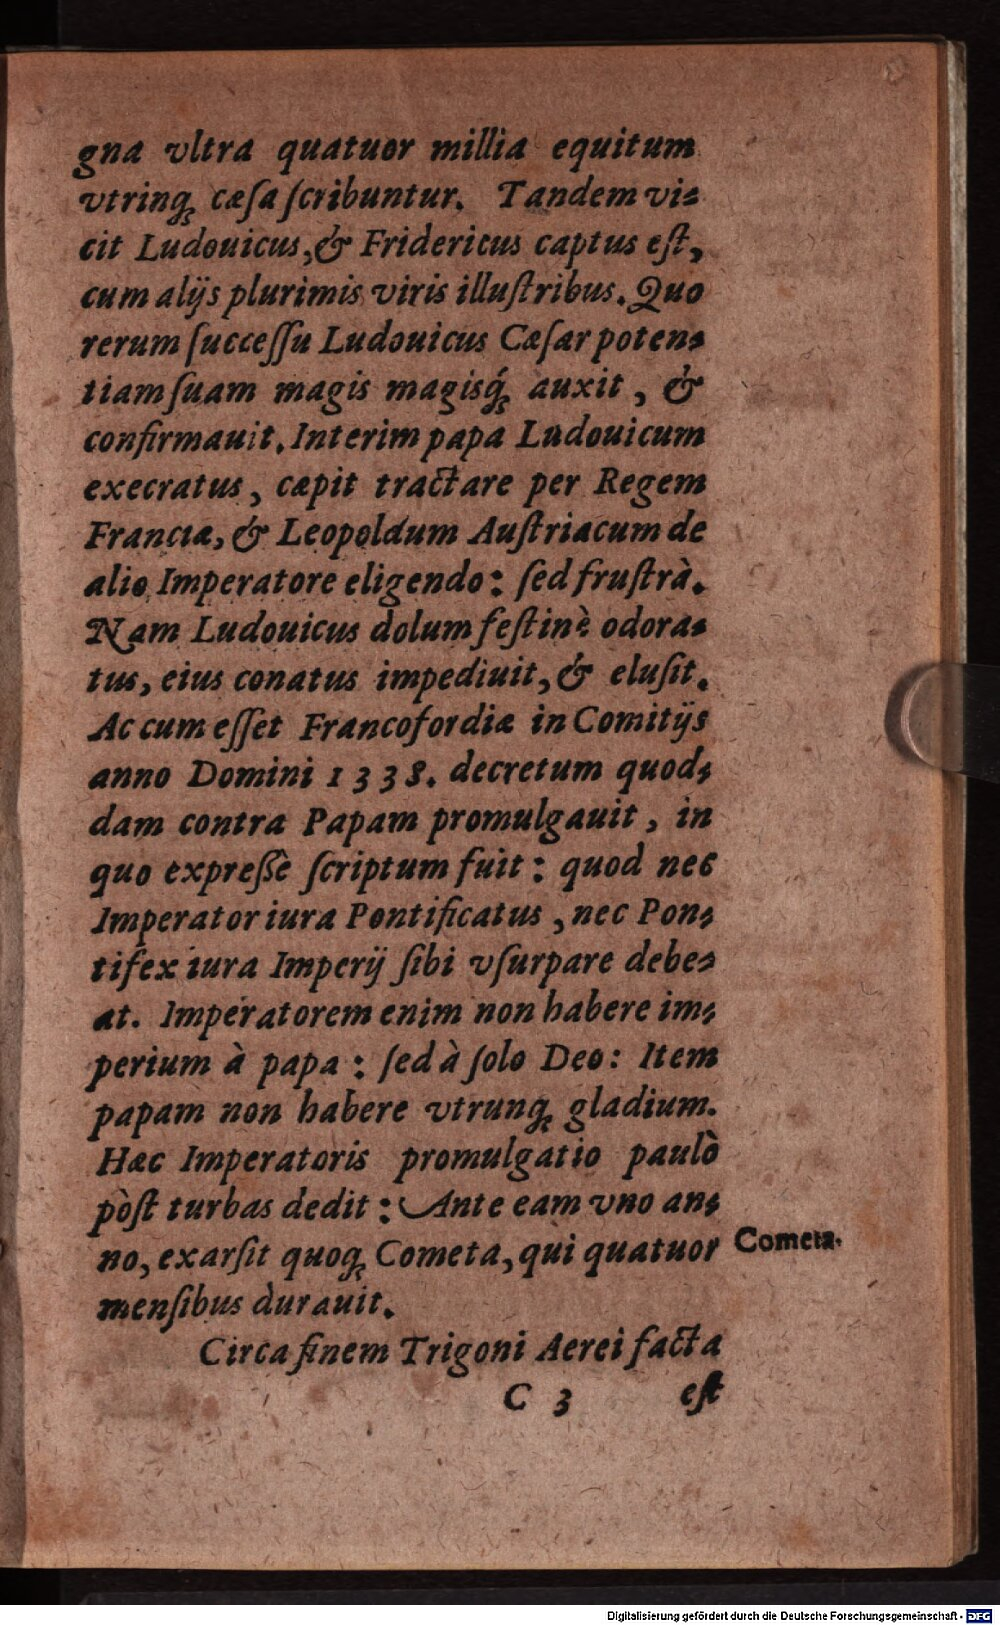 gna vltra quatuor millia equitum
vtrinq; cæſa ſcribuntur. Tandem vi-
cit Ludouicus, & Fridericus captus eſt,
cum alijs plurimis viris illuſtribus. Quo
rerum ſucceſſu Ludouicus Cæſar poten-
tiam ſuam magis magisq́; auxit, &
confirmauit. Interim papa Ludouicum
execratus, cæpit tractare per Regem
Franciæ, & Leopoldum Auſtriacum de
alio Imperatore eligendo: ſed fruſtrà.
Nam Ludouicus dolum feſtinè odora-
tus, eius conatus impediuit, & eluſit.
Ac cum eſſet Francofordiæ in Comitijs
anno Domini 1338. decretum quod-
dam contra Papam promulgauit, in
quo expreſſè ſcriptum fuit: quod nec
Imperator iura Pontificatus, nec Pon-
tifex iura Imperij ſibi vſurpare debe-
at. Imperatorem enim non habere im-
perium à papa: ſed à ſolo Deo: Item
papam non habere vtrunq; gladium.
Hæc Imperatoris promulgatio paulò
pòſt turbas dedit: Ante eam vno an-
no, exarſit quoq; Cometa, qui quatuor
Cometa.
menſibus durauit.
Circa finem Trigoni Aerei facta
C 3 eſt
Digitalisierung gefördert durch die Deutsche Forschungsgemeinschaft - DFG